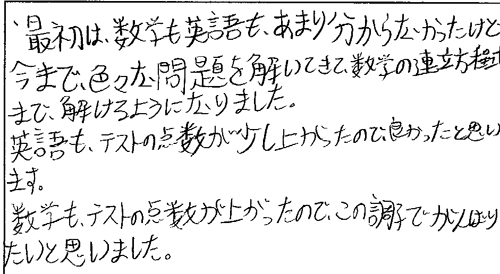 ・最初は、数学も英語も、あまり分からなかったけど
今まで、色々な問題を解いてきて、数学の連立方程式
まで、解けるようになりました。
英語も、テストの点数が少し上がったので、良かったと思い
ます。
数学も、テストの点数が上がったので、この調子でがんばり
たいと思いました。